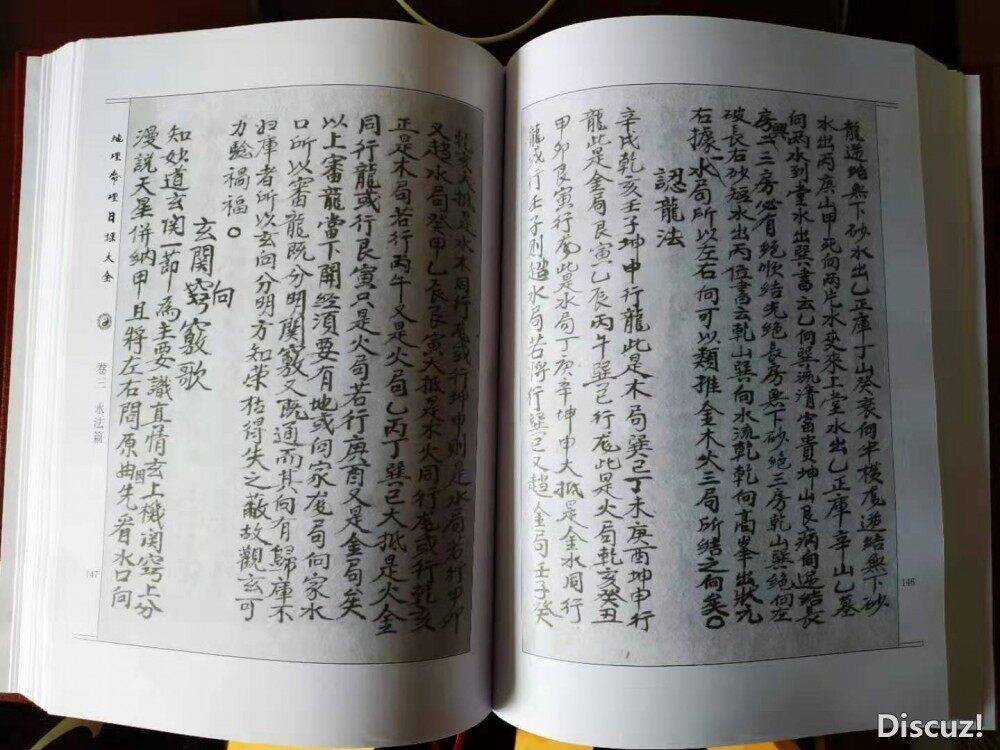 龍逆結無下砂水出乙正庫丁山癸衰向半横龍逆結無下砂
水出丙庚山甲死向兩片水夾來上堂水出乙正庫辛山乙墓
向兩水到堂水出巽書云乙向巽流清富貴坤山艮病向逆結長
房興三房必有絕順結先絕長房無下砂絕三房乾山巽絕向左
破長右砂短水出丙位書云乾山巽向水流乾乾向高峯出狀元
右據一水局所以左右向可以類推金木火三局所結之向矣○
認龍法
辛戌乾亥壬子坤申行龍此是木局巽巳丁未庚酉坤申行
龍此是金局艮寅乙辰丙午巽巳行龍此是火局乾亥癸丑
甲卯艮寅行龍此是水局丁庚辛坤申大抵是金水同行
龍或行壬子則趨水局若將行巽巳又趨金局壬子癸
乾亥大抵是水木同行龍或行坤申則是水局若行甲卯
又趨水局癸甲乙辰艮寅大抵是水火同行龍或行乾亥
正是木局若行丙午又是火局乙丙丁巽巳大抵是火金
同行龍或行艮寅只是火局若行庚酉又是金局矣
以上審龍當下開經須要有地或向家龍局向家水
口所以審龍既分明関竅又既通而其向有歸庫不
歸庫者所以玄向分明方知榮枯得失之蔽故觀玄可
力驗禍福○
玄関竅向竅歌
知妙道玄関一節為主要識真情玄上機関窍上分
漫說天星併納甲且將左右問原曲先看水口向
地理命理目録大全
卷三 水法篇
147
146
Discuz!